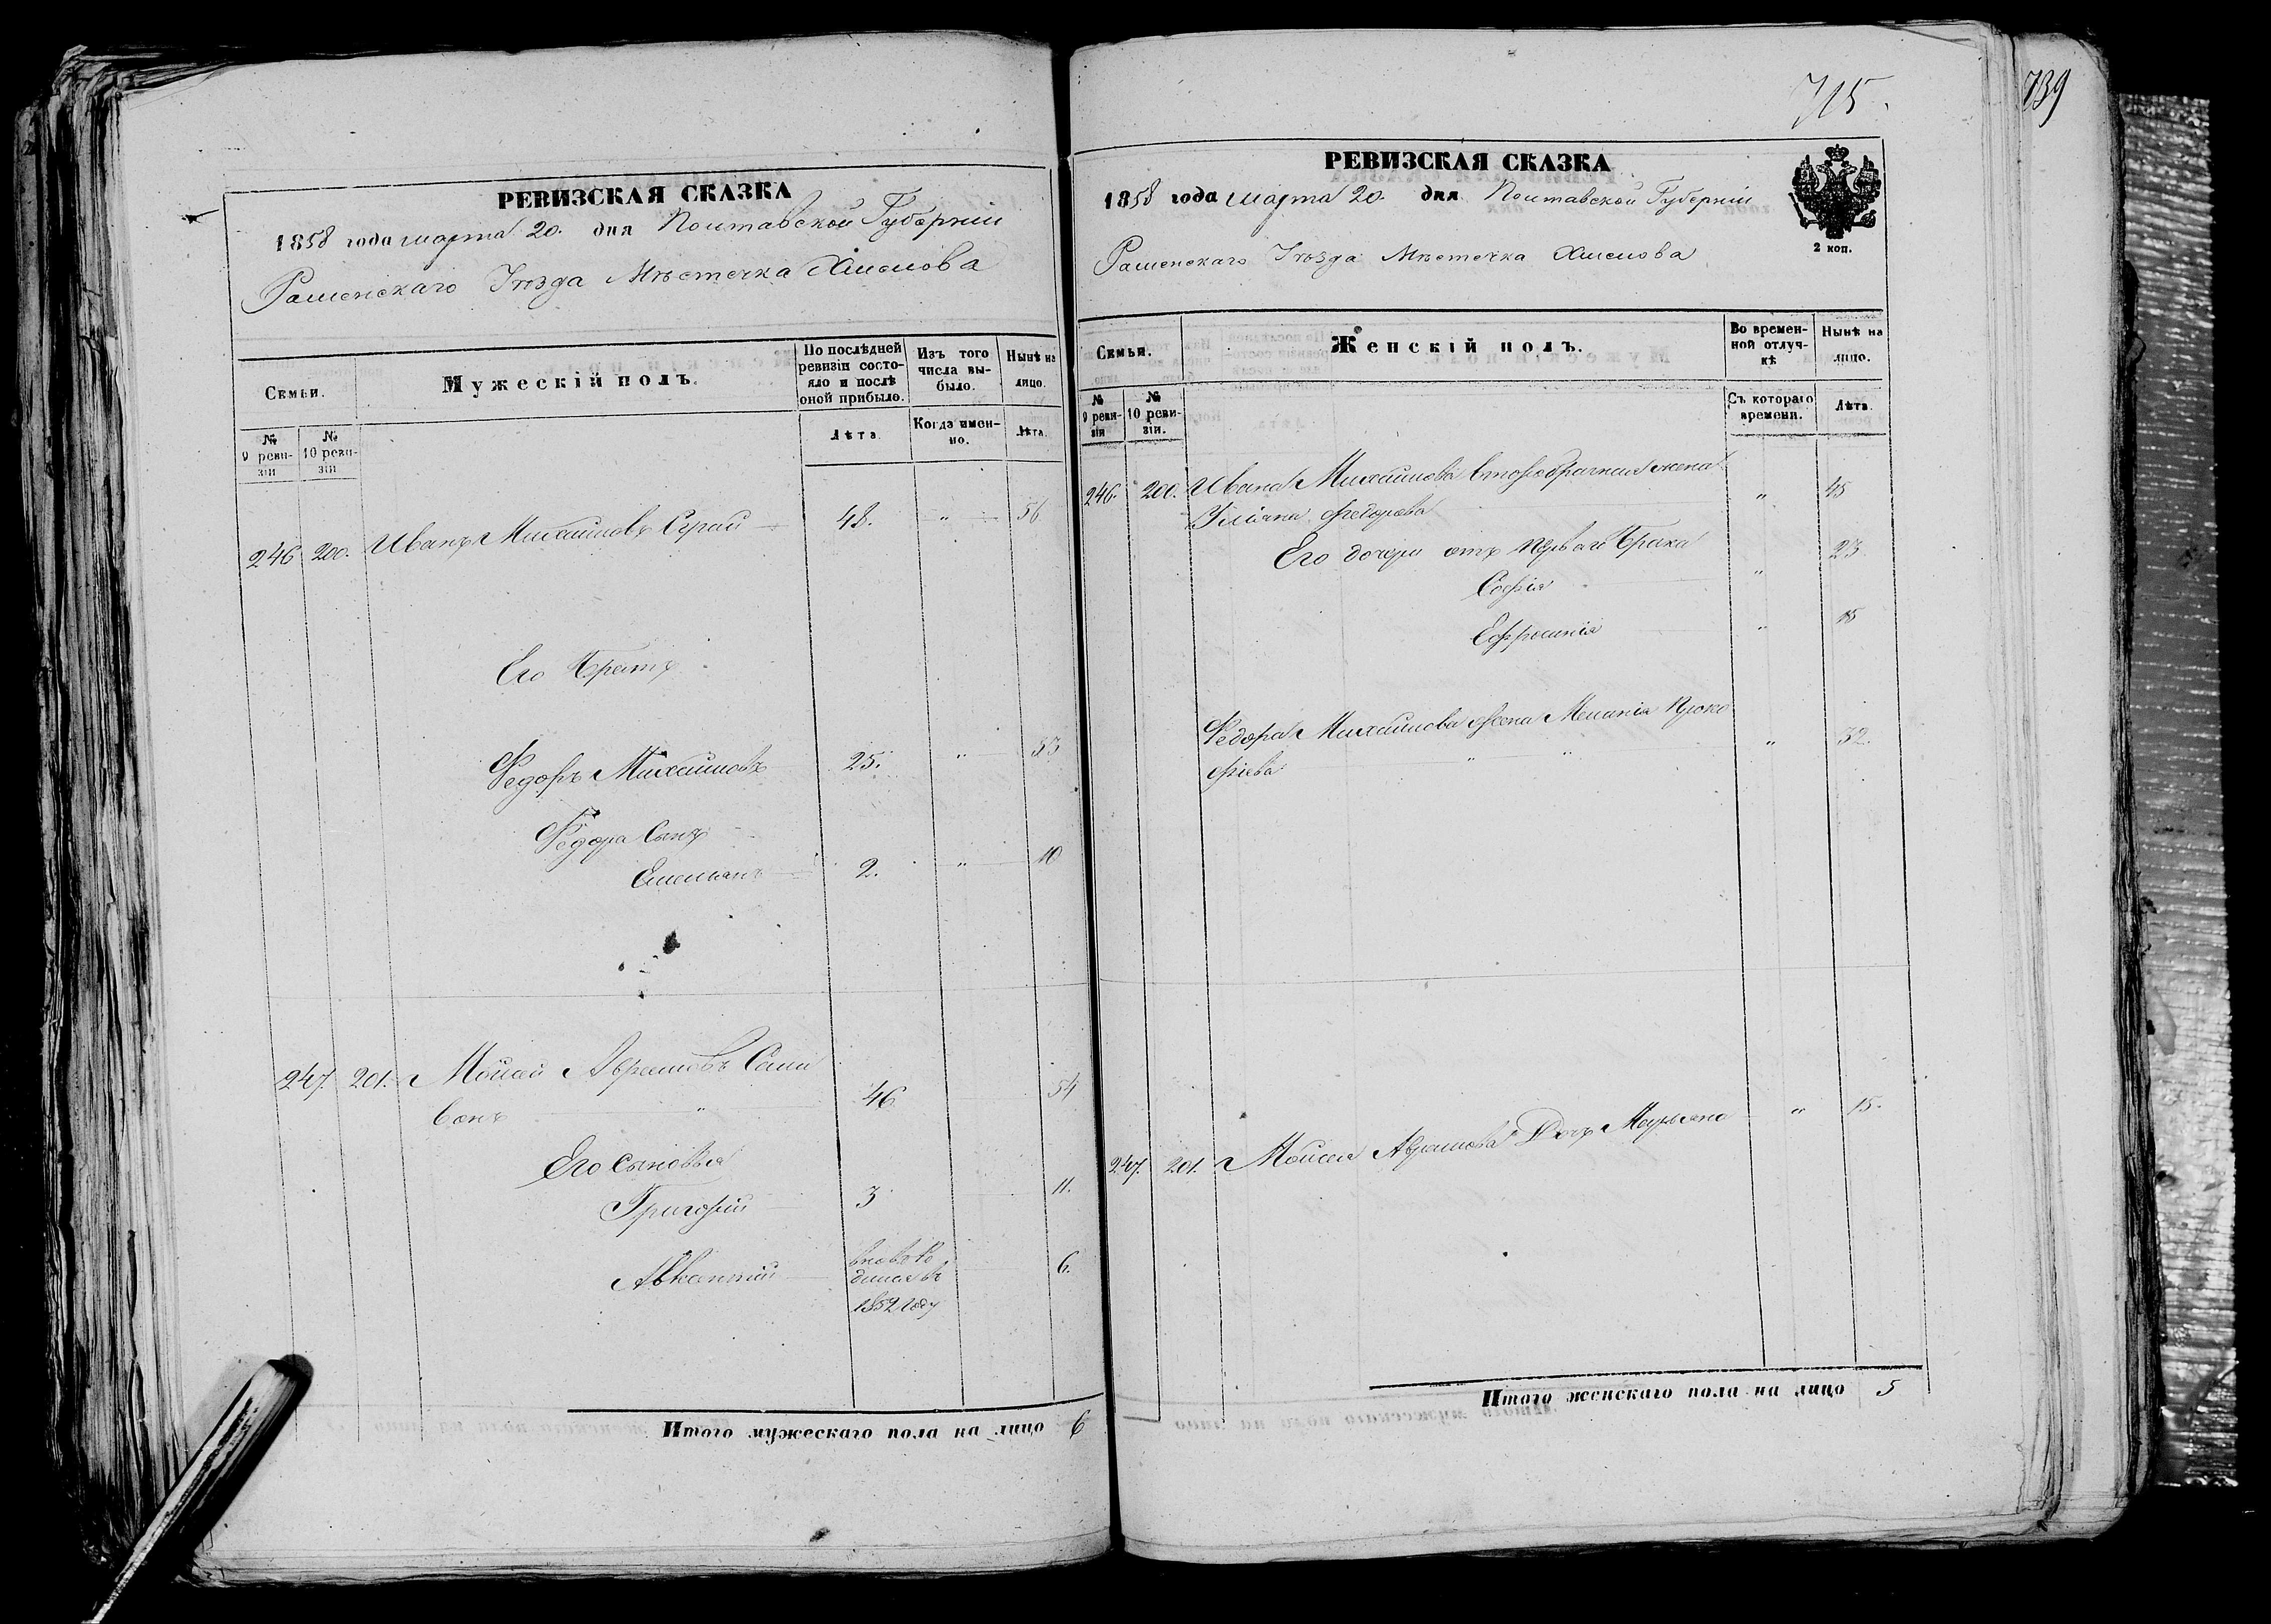 РЕВИЗСКАЯ СКАЗКА
1858 года марта 20. дня Полтавской Губерніи
Роменскаго Уѣзда Мѣстечка Хмелова
Семьи.
Мужескій полъ.
По послѣдней ревизіи состояло и послѣ оной прибыло.
Изъ того числа выбыло.
Нынѣ на лицо.
№ 9 ревизіи
№ 10 ревизіи
Лѣта.
Когда именно.
Лѣта.
246 200. Иванъ Михайловъ 48. " 56
Его Братъ
Федоръ Михайловъ 25. " 33
Федора Сынъ
Емельянъ 2. " 10
247. 201. Мойсей Аврамовъ Сели
вонъ " 46 54
Его сыновья
Григорій 3 11.
Авксентій вновь ро
дился въ
1852 году 6.
Итого мужескаго пола на лицо 6
715.
739
РЕВИЗСКАЯ СКАЗКА
1858 года марта 20. дня Полтавской Губерніи
Роменскаго Уѣзда Мѣстечка Хмелова
2 коп.
Семьи.
Женскій полъ.
Во временной отлучкѣ
Нынѣ на лицо.
№ 9 ревизіи
№ 10 ревизіи.
Съ котораго времени.
Лѣта.
246. 200. Ивана Михайлова второбрачная жена
Уліяна Федорова " 45
Его дочери отъ перваго брака
Софія " 23
Ефросинія " 15
Федора Михайлова жена Меланія Проко
фіева " " " 32.
247. 201. Мойсея Аврамова Дочь Марьяна " 15.
Итого женскаго пола на лицо 5